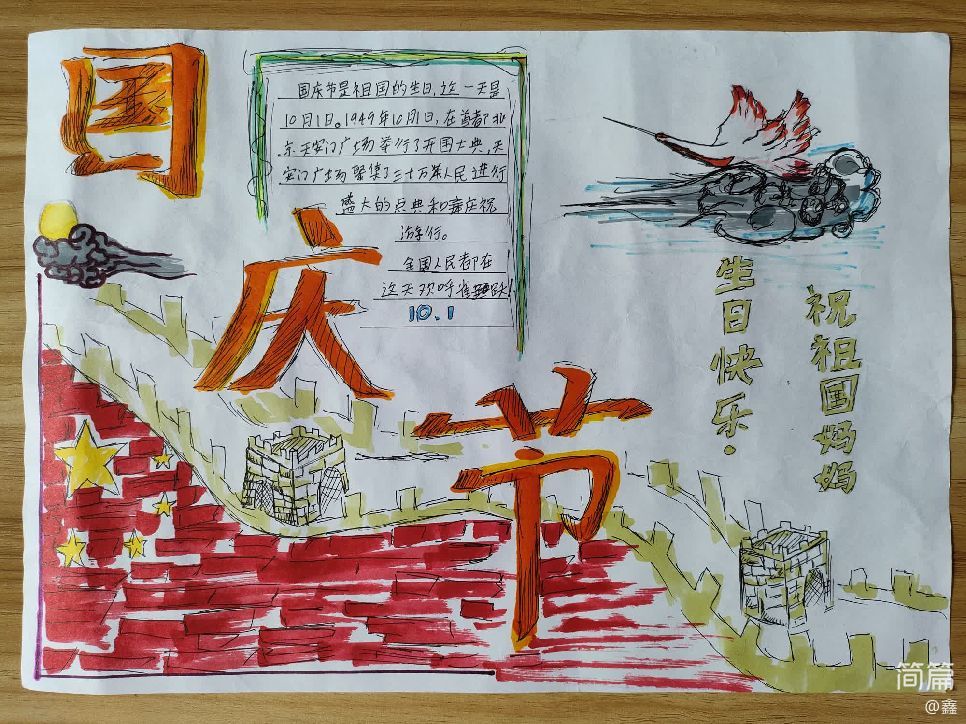 国庆节
国庆节是祖国的生日,这一天是
10月1日。1949年10月1日,在首都北
京天安门广场举行了开国大典,天
安门广场聚集了三十万军人民进行
盛大的点典和庆祝
游行。
全国人民都在
这天欢呼雀跃!
10.1
祝祖国妈妈
生日快乐.
简篇
@鑫